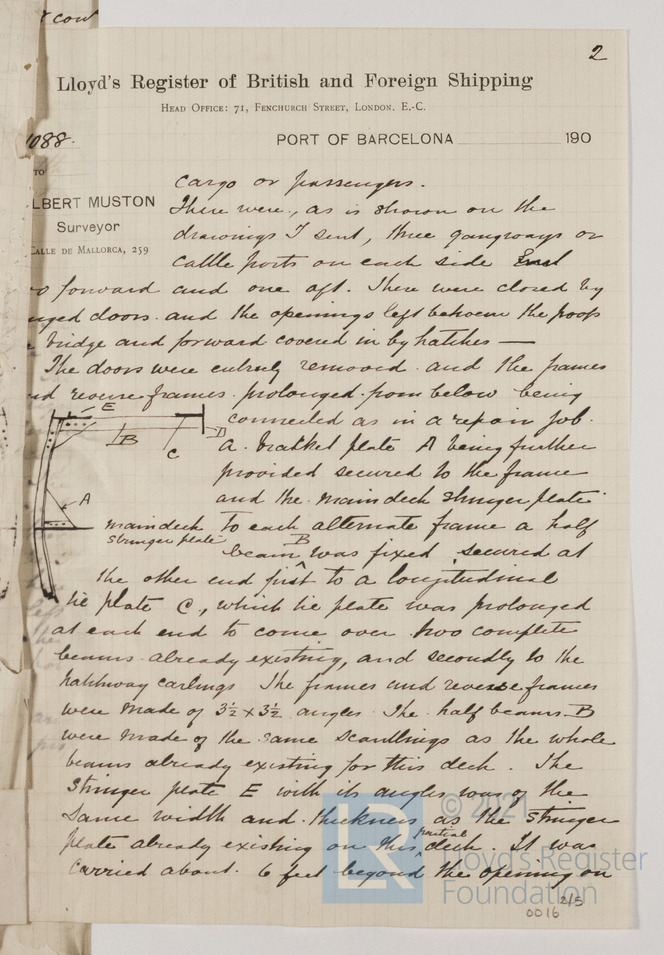 cow
2
Lloyd's Register of British and Foreign Shipping
HEAD OFFICE: 71, FENCHURCH STREET, LONDON. E.-C.
1088.
PORT OF BARCELONA 190
TO
LBERT MUSTON
Surveyor
CALLE DE MALLORCA, 259
cargo or passengers.
There were, as is shown on the
drawings I sent, three gangways or
cattle ports on each side
o forward and one aft. There were closed by
nged doors. and the openings left between the poop
bridge and forward covered in by hatches —
The doors were entirely removed and the frames
nd reverse frames. prolonged from below being
connected as in a repair job.
A. bracket plate A being further
provided secured to the frame
and the main deck stringer plate
E
B
C
D
A
main deck
stringer plate
To each alternate frame a half
beam B was fixed, secured at
the other end first to a longitudinal
tie plate C, which tie plate was prolonged
at each end to come over two complete
beams already existing, and secondly to the
hatchway carlings The frames and reverse frames
were made of 3½ x 3½ angles. The half beams B
were made of the same scantlings as the whole
beams already existing for this deck. The
stringer plate E with its angles was of the
same width and thickness as the stringer
plate already existing on this partial deck. It was
carried about 6 feet beyond the opening on
LR
© 2021
Lloyd's Register
Foundation
0016 2/5